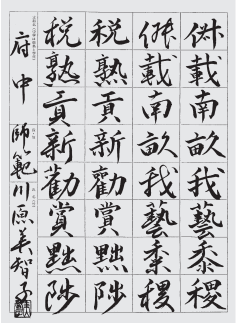 俶載南畝我藝黍稷
俶載南畝我藝黍稷
税熟貢新勸賞黜陟
税熟貢新勸賞黜陟
府中 師範 川原美智子